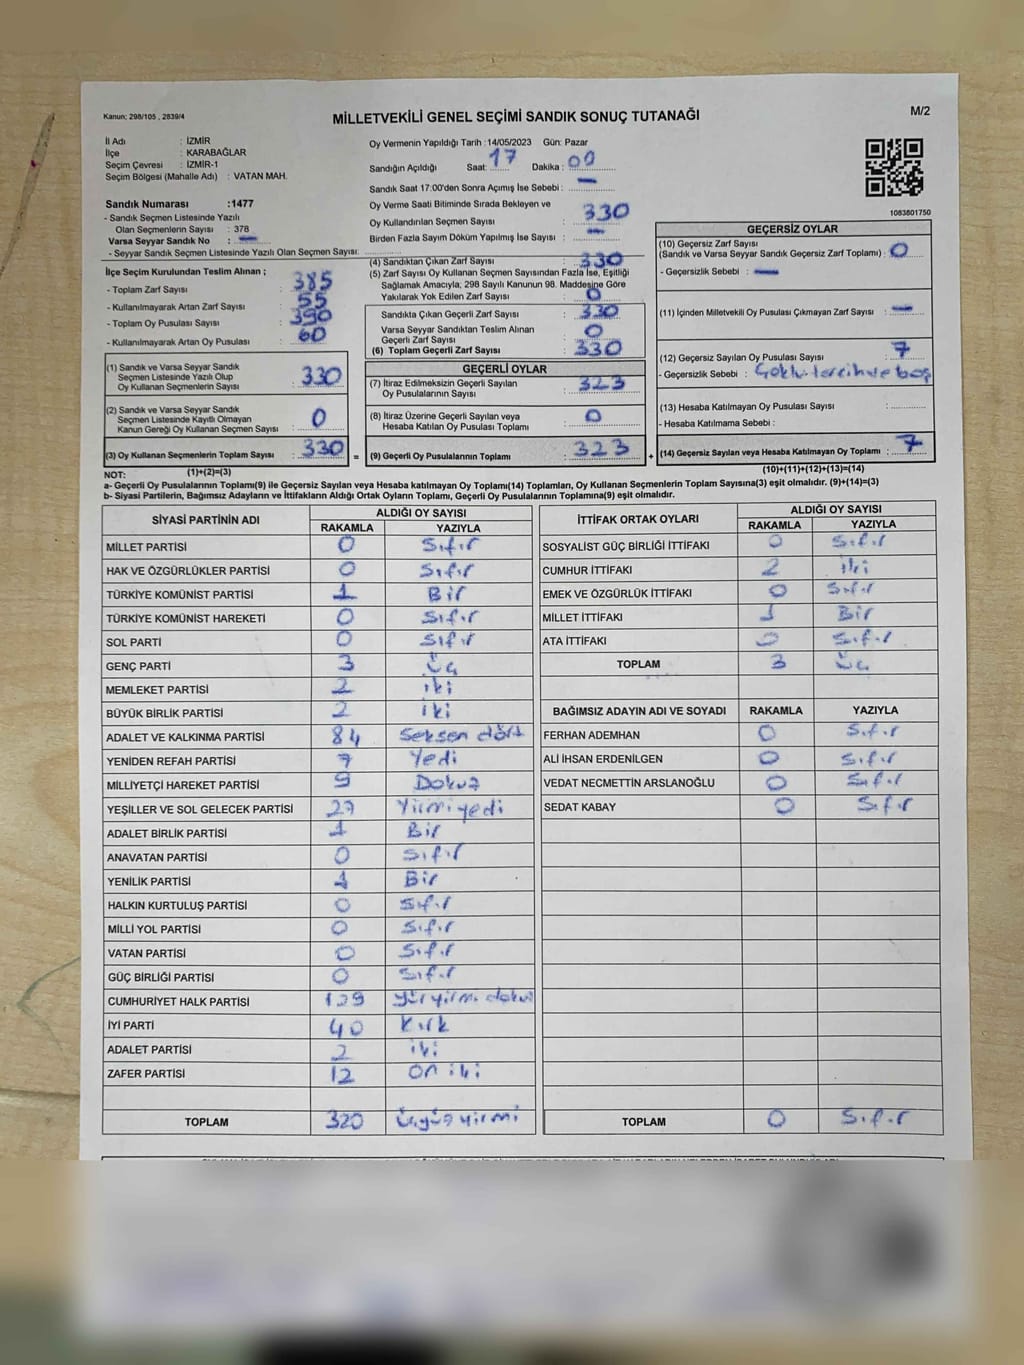 Kanun; 298/105 , 2839/4
MİLLETVEKİLİ GENEL SEÇİMİ SANDIK SONUÇ TUTANAĞI
M/2
İl Adı : İZMİR
İlçe : KARABAĞLAR
Seçim Çevresi : İZMİR-1
Seçim Bölgesi (Mahalle Adı) : VATAN MAH.
Sandık Numarası :1477
- Sandık Seçmen Listesinde Yazılı
Olan Seçmenlerin Sayısı : 378
Varsa Seyyar Sandık No : —
- Seyyar Sandık Seçmen Listesinde Yazılı Olan Seçmen Sayısı:
Oy Vermenin Yapıldığı Tarih :14/05/2023 Gün: Pazar
Sandığın Açıldığı Saat: 17 Dakika : 00
Sandık Saat 17:00'den Sonra Açımış İse Sebebi : —
Oy Verme Saati Bitiminde Sırada Bekleyen ve
Oy Kullandırılan Seçmen Sayısı : 330
Birden Fazla Sayım Döküm Yapılmış İse Sayısı : —
1083801750
İlçe Seçim Kurulundan Teslim Alınan ;
- Toplam Zarf Sayısı : 385
- Kullanılmayarak Artan Zarf Sayısı : 55
- Toplam Oy Pusulası Sayısı : 390
- Kullanılmayarak Artan Oy Pusulası : 60
(1) Sandık ve Varsa Seyyar Sandık
Seçmen Listesinde Yazılı Olup
Oy Kullanan Seçmenlerin Sayısı : 330
(2) Sandık ve Varsa Seyyar Sandık
Seçmen Listesinde Kayıtlı Olmayan
Kanun Gereği Oy Kullanan Seçmen Sayısı : 0
(3) Oy Kullanan Seçmenlerin Toplam Sayısı : 330 =
(4) Sandıktan Çıkan Zarf Sayısı : 330
(5) Zarf Sayısı Oy Kullanan Seçmen Sayısından Fazla İse, Eşitliği
Sağlamak Amacıyla, 298 Sayılı Kanunun 98. Maddesine Göre
Yakılarak Yok Edilen Zarf Sayısı : 0
Sandıkta Çıkan Geçerli Zarf Sayısı : 330
Varsa Seyyar Sandıktan Teslim Alınan
Geçerli Zarf Sayısı : 0
(6) Toplam Geçerli Zarf Sayısı : 330
GEÇERLİ OYLAR
(7) İtiraz Edilmeksizin Geçerli Sayılan
Oy Pusulalarının Sayısı : 323
(8) İtiraz Üzerine Geçerli Sayılan veya
Hesaba Katılan Oy Pusulası Toplamı : 0
(9) Geçerli Oy Pusulalarının Toplamı : 323 +
GEÇERSİZ OYLAR
(10) Geçersiz Zarf Sayısı
(Sandık ve Varsa Seyyar Sandık Geçersiz Zarf Toplamı) : 0
- Geçersizlik Sebebi : —
(11) İçinden Milletvekili Oy Pusulası Çıkmayan Zarf Sayısı : —
(12) Geçersiz Sayılan Oy Pusulası Sayısı : 7
- Geçersizlik Sebebi : Çoklu tercih ve boş
(13) Hesaba Katılmayan Oy Pusulası Sayısı :
- Hesaba Katılmama Sebebi :
(14) Geçersiz Sayılan veya Hesaba Katılmayan Oy Toplamı : 7
NOT: (1)+(2)=(3) (10)+(11)+(12)+(13)=(14)
a- Geçerli Oy Pusulalarının Toplamı(9) ile Geçersiz Sayılan veya Hesaba katılmayan Oy Toplamı(14) Toplamları, Oy Kullanan Seçmenlerin Toplam Sayısına(3) eşit olmalıdır. (9)+(14)=(3)
b- Siyasi Partilerin, Bağımsız Adayların ve İttifakların Aldığı Ortak Oyların Toplamı, Geçerli Oy Pusulalarının Toplamına(9) eşit olmalıdır.
SİYASİ PARTİNİN ADI ALDIĞI OY SAYISI
RAKAMLA YAZIYLA
MİLLET PARTİSİ 0 Sıfır
HAK VE ÖZGÜRLÜKLER PARTİSİ 0 Sıfır
TÜRKİYE KOMÜNİST PARTİSİ 1 Bir
TÜRKİYE KOMÜNİST HAREKETİ 0 Sıfır
SOL PARTİ 0 Sıfır
GENÇ PARTİ 3 Üç
MEMLEKET PARTİSİ 2 iki
BÜYÜK BİRLİK PARTİSİ 2 iki
ADALET VE KALKINMA PARTİSİ 84 Seksen dört
YENİDEN REFAH PARTİSİ 7 Yedi
MİLLİYETÇİ HAREKET PARTİSİ 9 Dokuz
YEŞİLLER VE SOL GELECEK PARTİSİ 27 Yirmi yedi
ADALET BİRLİK PARTİSİ 1 Bir
ANAVATAN PARTİSİ 0 Sıfır
YENİLİK PARTİSİ 1 Bir
HALKIN KURTULUŞ PARTİSİ 0 Sıfır
MİLLİ YOL PARTİSİ 0 Sıfır
VATAN PARTİSİ 0 Sıfır
GÜÇ BİRLİĞİ PARTİSİ 0 Sıfır
CUMHURİYET HALK PARTİSİ 129 Yüz yirmi dokuz
İYİ PARTİ 40 Kırk
ADALET PARTİSİ 2 iki
ZAFER PARTİSİ 12 on iki
TOPLAM 320 üçyüz yirmi
İTTİFAK ORTAK OYLARI ALDIĞI OY SAYISI
RAKAMLA YAZIYLA
SOSYALİST GÜÇ BİRLİĞİ İTTİFAKI 0 Sıfır
CUMHUR İTTİFAKI 2 iki
EMEK VE ÖZGÜRLÜK İTTİFAKI 0 Sıfır
MİLLET İTTİFAKI 1 Bir
ATA İTTİFAKI 0 Sıfır
TOPLAM 3 Üç
BAĞIMSIZ ADAYIN ADI VE SOYADI RAKAMLA YAZIYLA
FERHAN ADEMHAN 0 Sıfır
ALİ İHSAN ERDENİLGEN 0 Sıfır
VEDAT NECMETTİN ARSLANOĞLU 0 Sıfır
SEDAT KABAY 0 Sıfır
TOPLAM 0 Sıfır